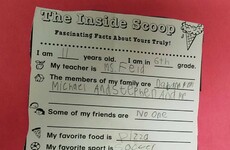 The Inside Scoop
Fascinating Facts About Yours Truly!
I am 11 years old. I am in 6th grade.
My teacher is Ms. Reid
The members of my family are
Michael and Stephen and me
Some of my friends are No one
My favorite food is pizza
My favorite sport is